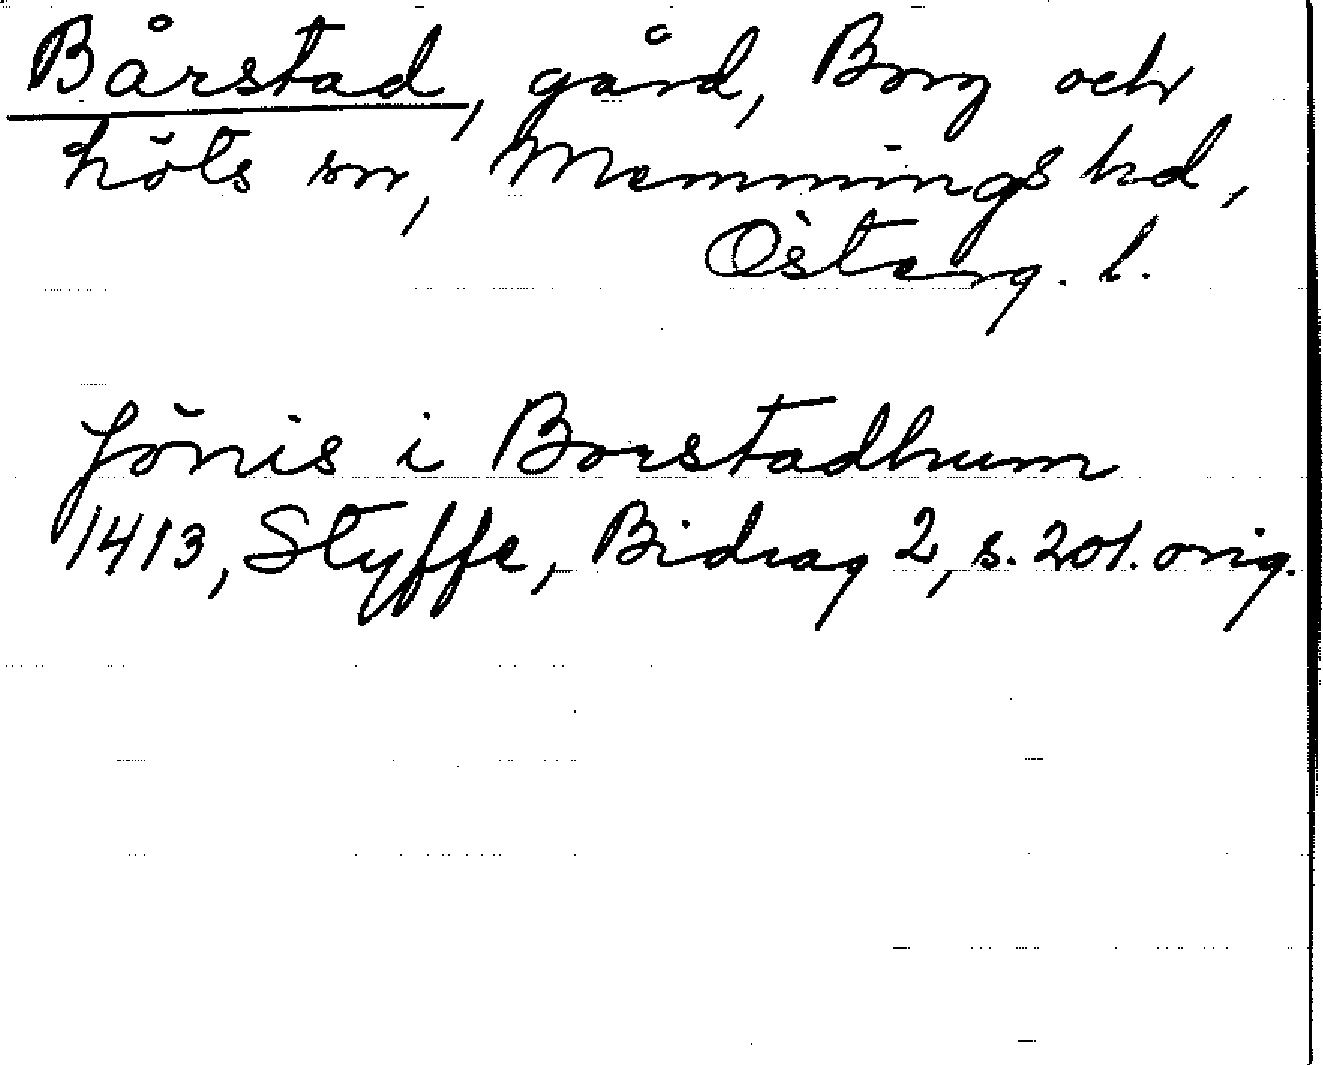 Bårstad, gård, Borg och
Löts sn, Memmings hd,
Österg. l.
Jönis i Borstadhum
1413, Styffe, Bidrag 2, s. 201. orig.